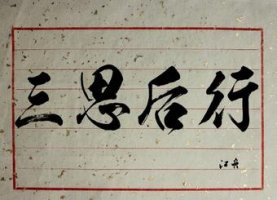 三思后行
江舟